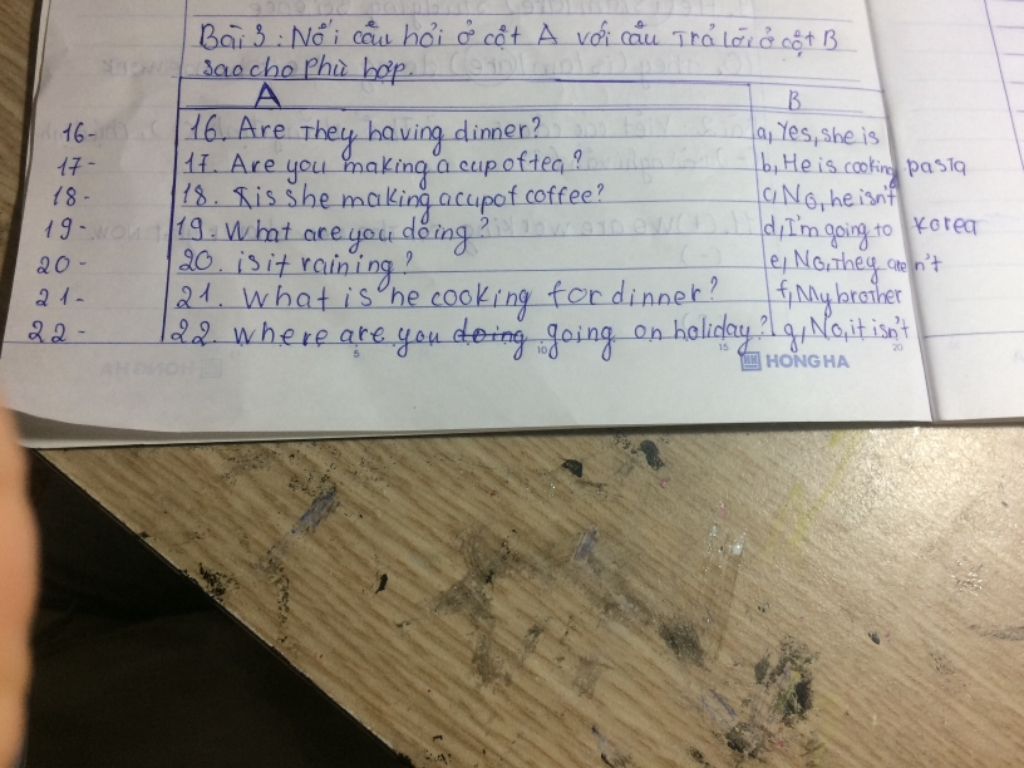 Bài 3: Nối câu hỏi ở cột A với câu trả lời ở cột B
sao cho phù hợp.
A B
16- 16. Are They having dinner? a, Yes, she is
17- 17. Are you making a cup of tea? b, He is cooking pasta
18- 18. is she making a cup of coffee? c, No, he isn't
19- 19. What are you doing? d, I'm going to Korea
20- 20. is it raining? e, No, They aren't
21- 21. What is he cooking for dinner? f, My brother
22- 22. where are you doing going on holiday? g, No, it isn't
5 10 15 20
HH HONG HA